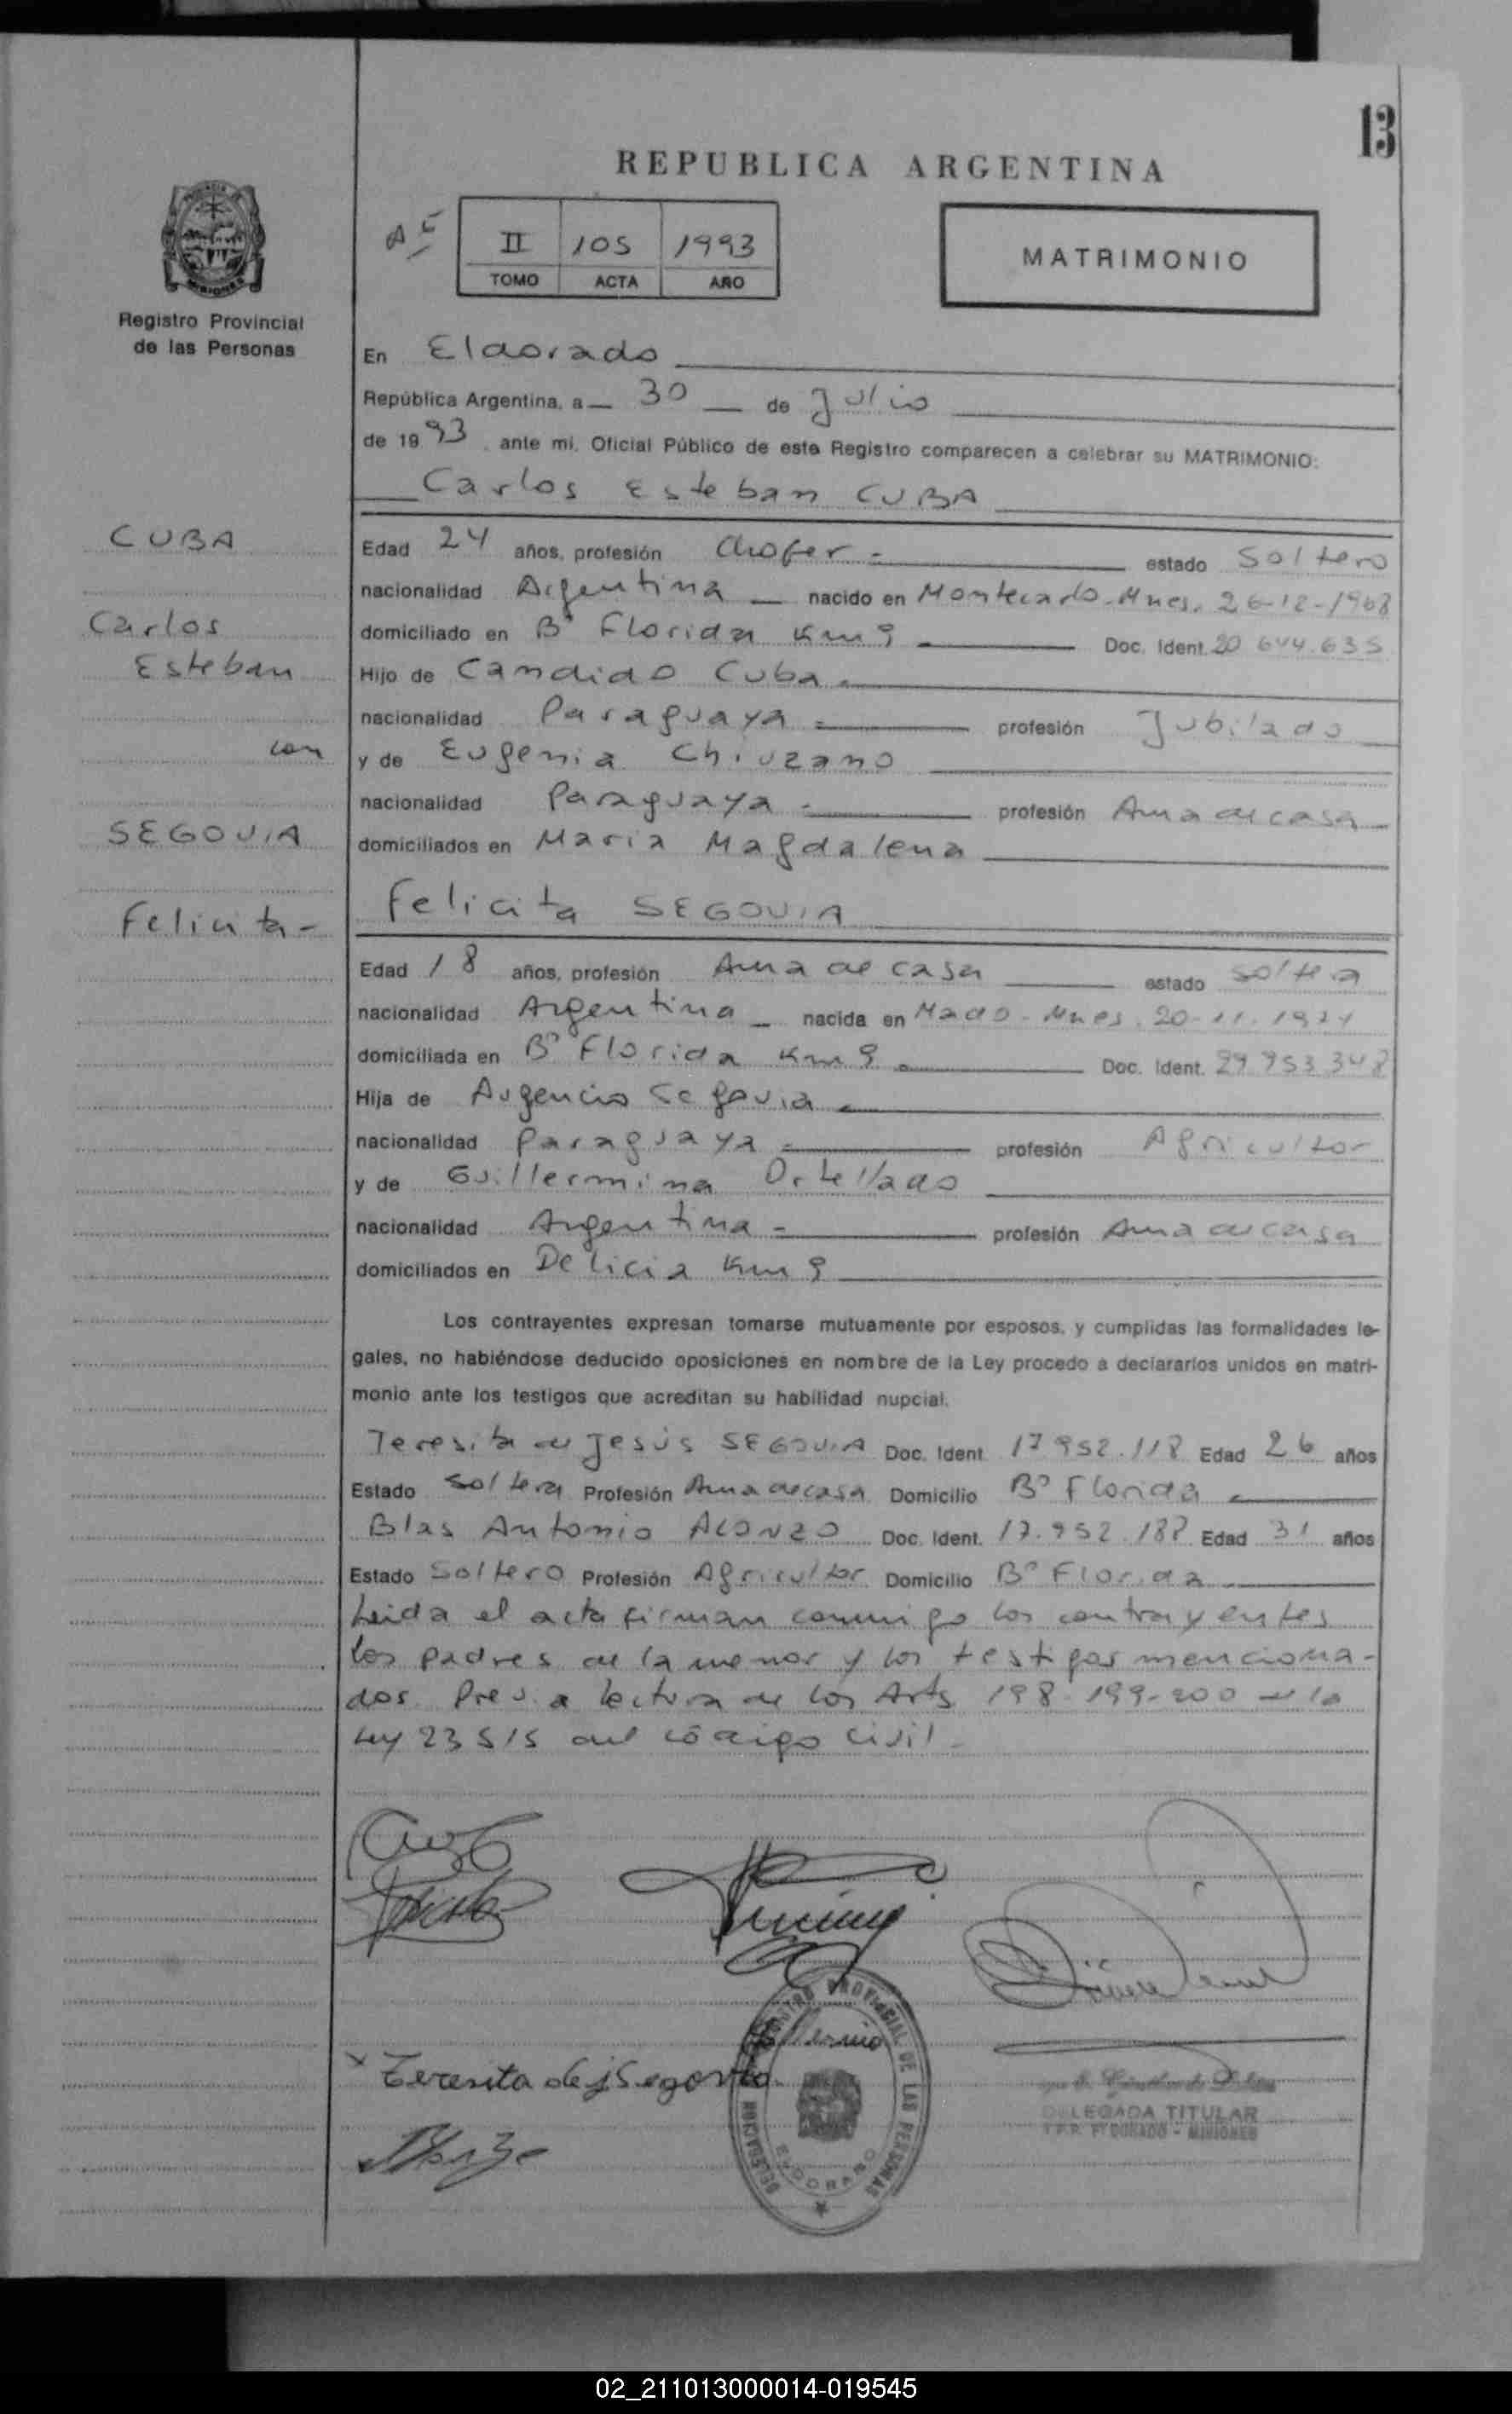 13
REPUBLICA ARGENTINA
II 105 1993
TOMO ACTA AÑO
MATRIMONIO
Registro Provincial
de las Personas
En Eldorado
República Argentina, a 30 de Julio
de 1993, ante mi, Oficial Público de este Registro comparecen a celebrar su MATRIMONIO:
Carlos Esteban CUBA
CUBA
Carlos
Esteban
con
SEGOVIA
Felicita -
Edad 24 años, profesión Chofer - estado Soltero
nacionalidad Argentina nacido en Montecarlo - Mnes. 26-12-1968
domiciliado en Bº Florida Km 9 Doc. Ident. 20 644.635
Hijo de Candido Cuba -
nacionalidad Paraguaya - profesión Jubilado
y de Eugenia Chiuzano
nacionalidad Paraguaya - profesión Ama de casa
domiciliados en Maria Magdalena
Felicita SEGOVIA
Edad 18 años, profesión Ama de casa estado soltera
nacionalidad Argentina nacida en Mado - Mnes. 20-11-1974
domiciliada en Bº Florida Km 9 Doc. Ident. 29 953 348
Hija de Augencio Segovia -
nacionalidad Paraguaya - profesión Agricultor
y de Guillermina Ortellado
nacionalidad Argentina - profesión Ama de casa
domiciliados en Delicia Km 9
Los contrayentes expresan tomarse mutuamente por esposos, y cumplidas las formalidades le-
gales, no habiéndose deducido oposiciones en nombre de la Ley procedo a declararlos unidos en matri-
monio ante los testigos que acreditan su habilidad nupcial.
Teresita de Jesús SEGOVIA Doc. Ident. 17 952.118 Edad 26 años
Estado Soltera Profesión Ama de casa Domicilio Bº Florida
Blas Antonio ALONZO Doc. Ident. 17.952.188 Edad 31 años
Estado Soltero Profesión Agricultor Domicilio Bº Florida
Leida el acta firman conmigo los contrayentes
los padres de la menor y los testigos menciona-
dos. Prev. a lectura de los Arts 198-199-200 de la
Ley 23515 del código civil -
x Teresita de j Segovia
REGISTRO PROVINCIAL DE LAS PERSONAS
DELEGACION
ELDORADO
DELEGADA TITULAR
R.P.P. ELDORADO - MISIONES
02_211013000014-019545